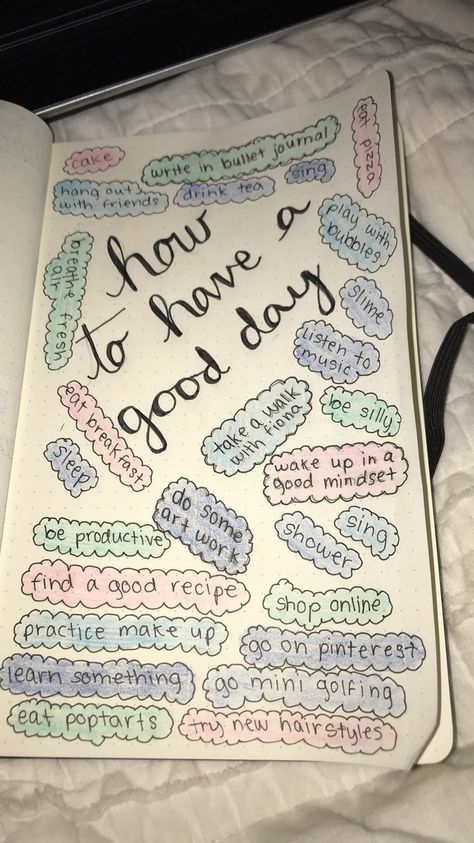 cake
write in bullet journal
eat pizza
hang out
with friends
drink tea
sing
play with
bubbles
breathe fresh
air
how
to have a
good day
slime
listen to
music
eat breakfast
take a walk
with fiona
be silly
sleep
wake up in a
good mindset
do some
art work
be productive
shower
sing
find a good recipe
shop online
practice make up
go on pinterest
learn something
go mini golfing
eat poptarts
try new hairstyles